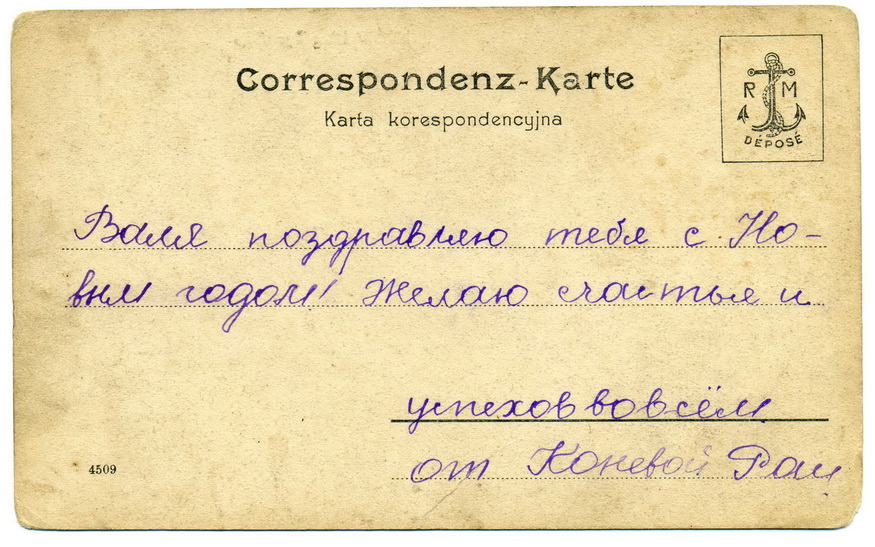 Correspondenz-Karte
Karta korespondencyjna
R M
DÉPOSÉ
Валя поздравляю тебя с Но-
вым годом! Желаю счастья и
успехов во всём
от Коневой Раи
4509